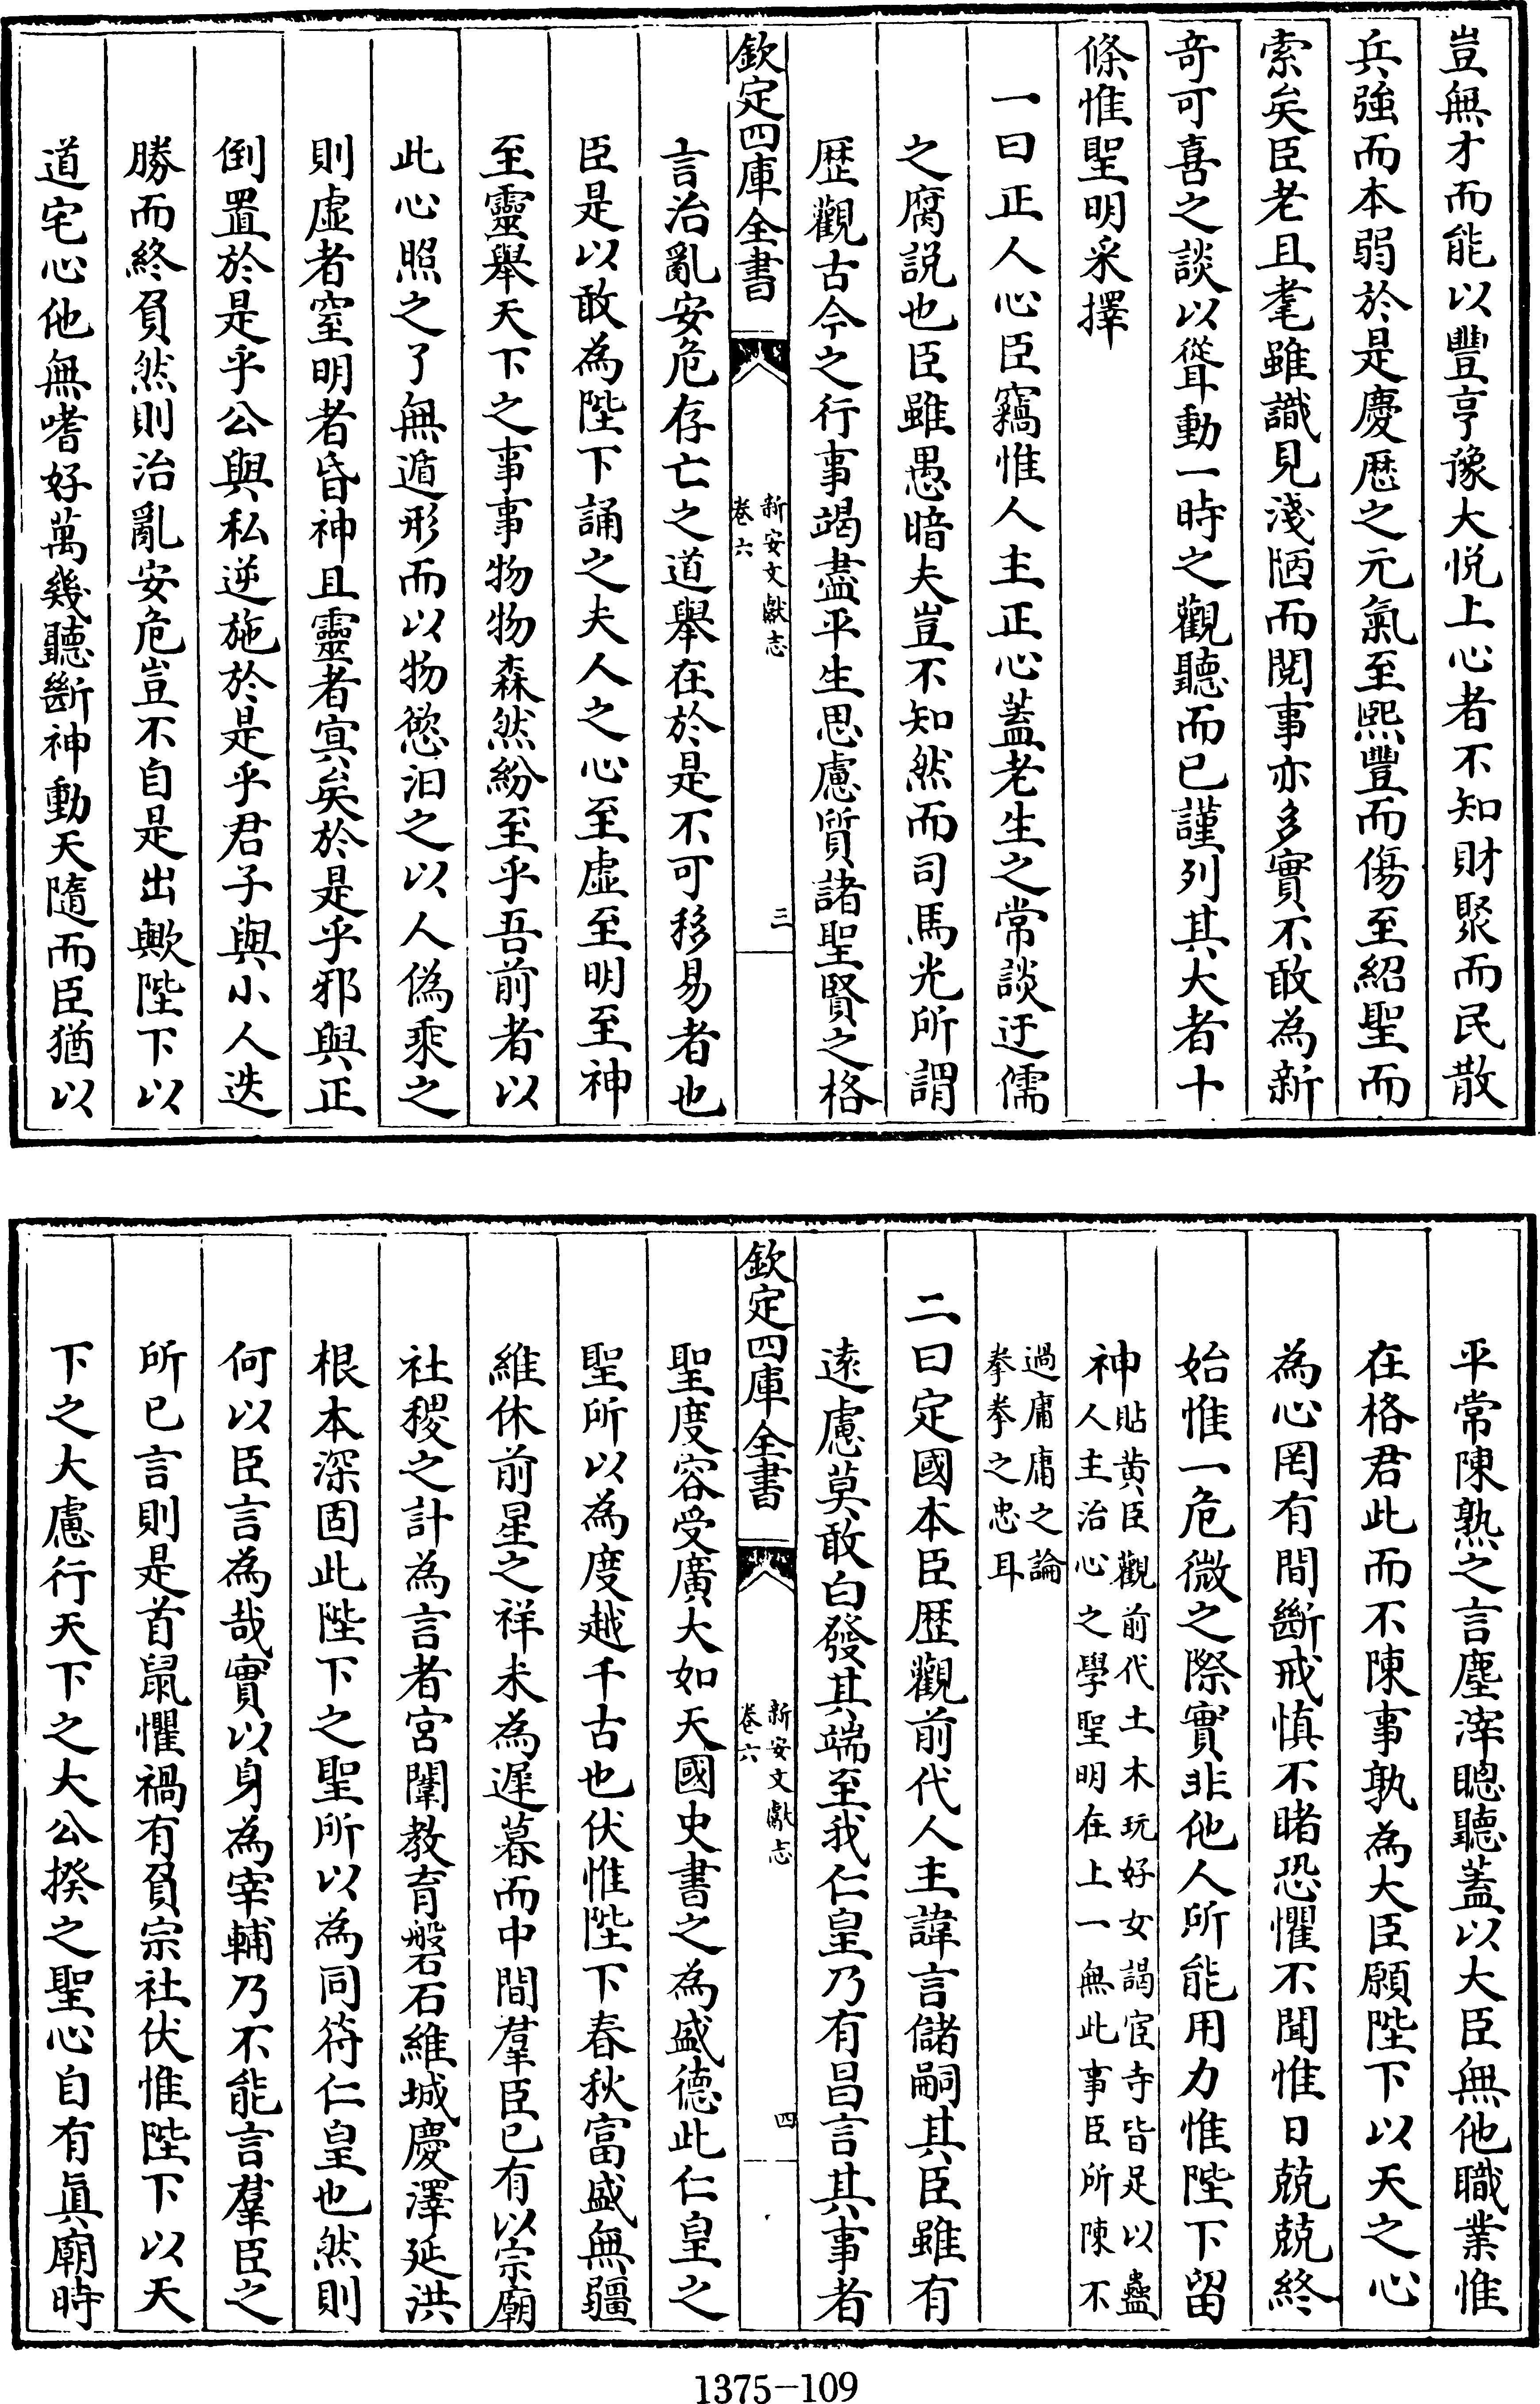 豈無才而能以豐亨豫大悦上心者不知財聚而民散
兵強而本弱於是慶厯之元氣至熙豐而傷至紹聖而
索矣臣老且耄雖識見淺陋而閲事亦多實不敢為新
奇可喜之談以聳動一時之觀聽而已謹列其大者十
條惟聖明采擇
一曰正人心臣竊惟人主正心蓋老生之常談迂儒
之腐説也臣雖愚暗夫豈不知然而司馬光所謂
歴觀古今之行事竭盡平生思慮質諸聖賢之格
欽定四庫全書
新安文獻志
卷六
三
言治亂安危存亡之道舉在於是不可移易者也
臣是以敢為陛下誦之夫人之心至虛至明至神
至靈舉天下之事事物物森然紛至乎吾前者以
此心照之了無遁形而以物慾汩之以人偽乘之
則虛者窒明者昏神且靈者㝠矣於是乎邪與正
倒置於是乎公與私逆施於是乎君子與小人迭
勝而終負然則治亂安危豈不自是出歟陛下以
道宅心他無嗜好萬幾聽斷神動天隨而臣猶以
平常陳熟之言塵滓聰聽蓋以大臣無他職業惟
在格君此而不陳事孰為大臣願陛下以天之心
為心罔有間斷戒慎不睹恐懼不聞惟日兢兢終
始惟一危微之際實非他人所能用力惟陛下留
神
貼黄臣觀前代土木玩好女謁宦寺皆足以蠱
人主治心之學聖明在上一無此事臣所陳不
過庸庸之論
拳拳之忠耳
二曰定國本臣歴觀前代人主諱言儲嗣其臣雖有
遠慮莫敢白發其端至我仁皇乃有昌言其事者
欽定四庫全書
新安文獻志
卷六
四
聖度容受廣大如天國史書之為盛德此仁皇之
聖所以為度越千古也伏惟陛下春秋富盛無疆
維休前星之祥未為遲暮而中間羣臣已有以宗廟
社稷之計為言者宮闈教育般石石維城慶澤延洪
根本深固此陛下之聖所以為同符仁皇也然則
何以臣言為哉實以身為宰輔乃不能言羣臣之
所已言則是首鼠懼禍有負宗社伏惟陛下以天
下之大慮行天下之大公揆之聖心自有眞廟時
1375-109